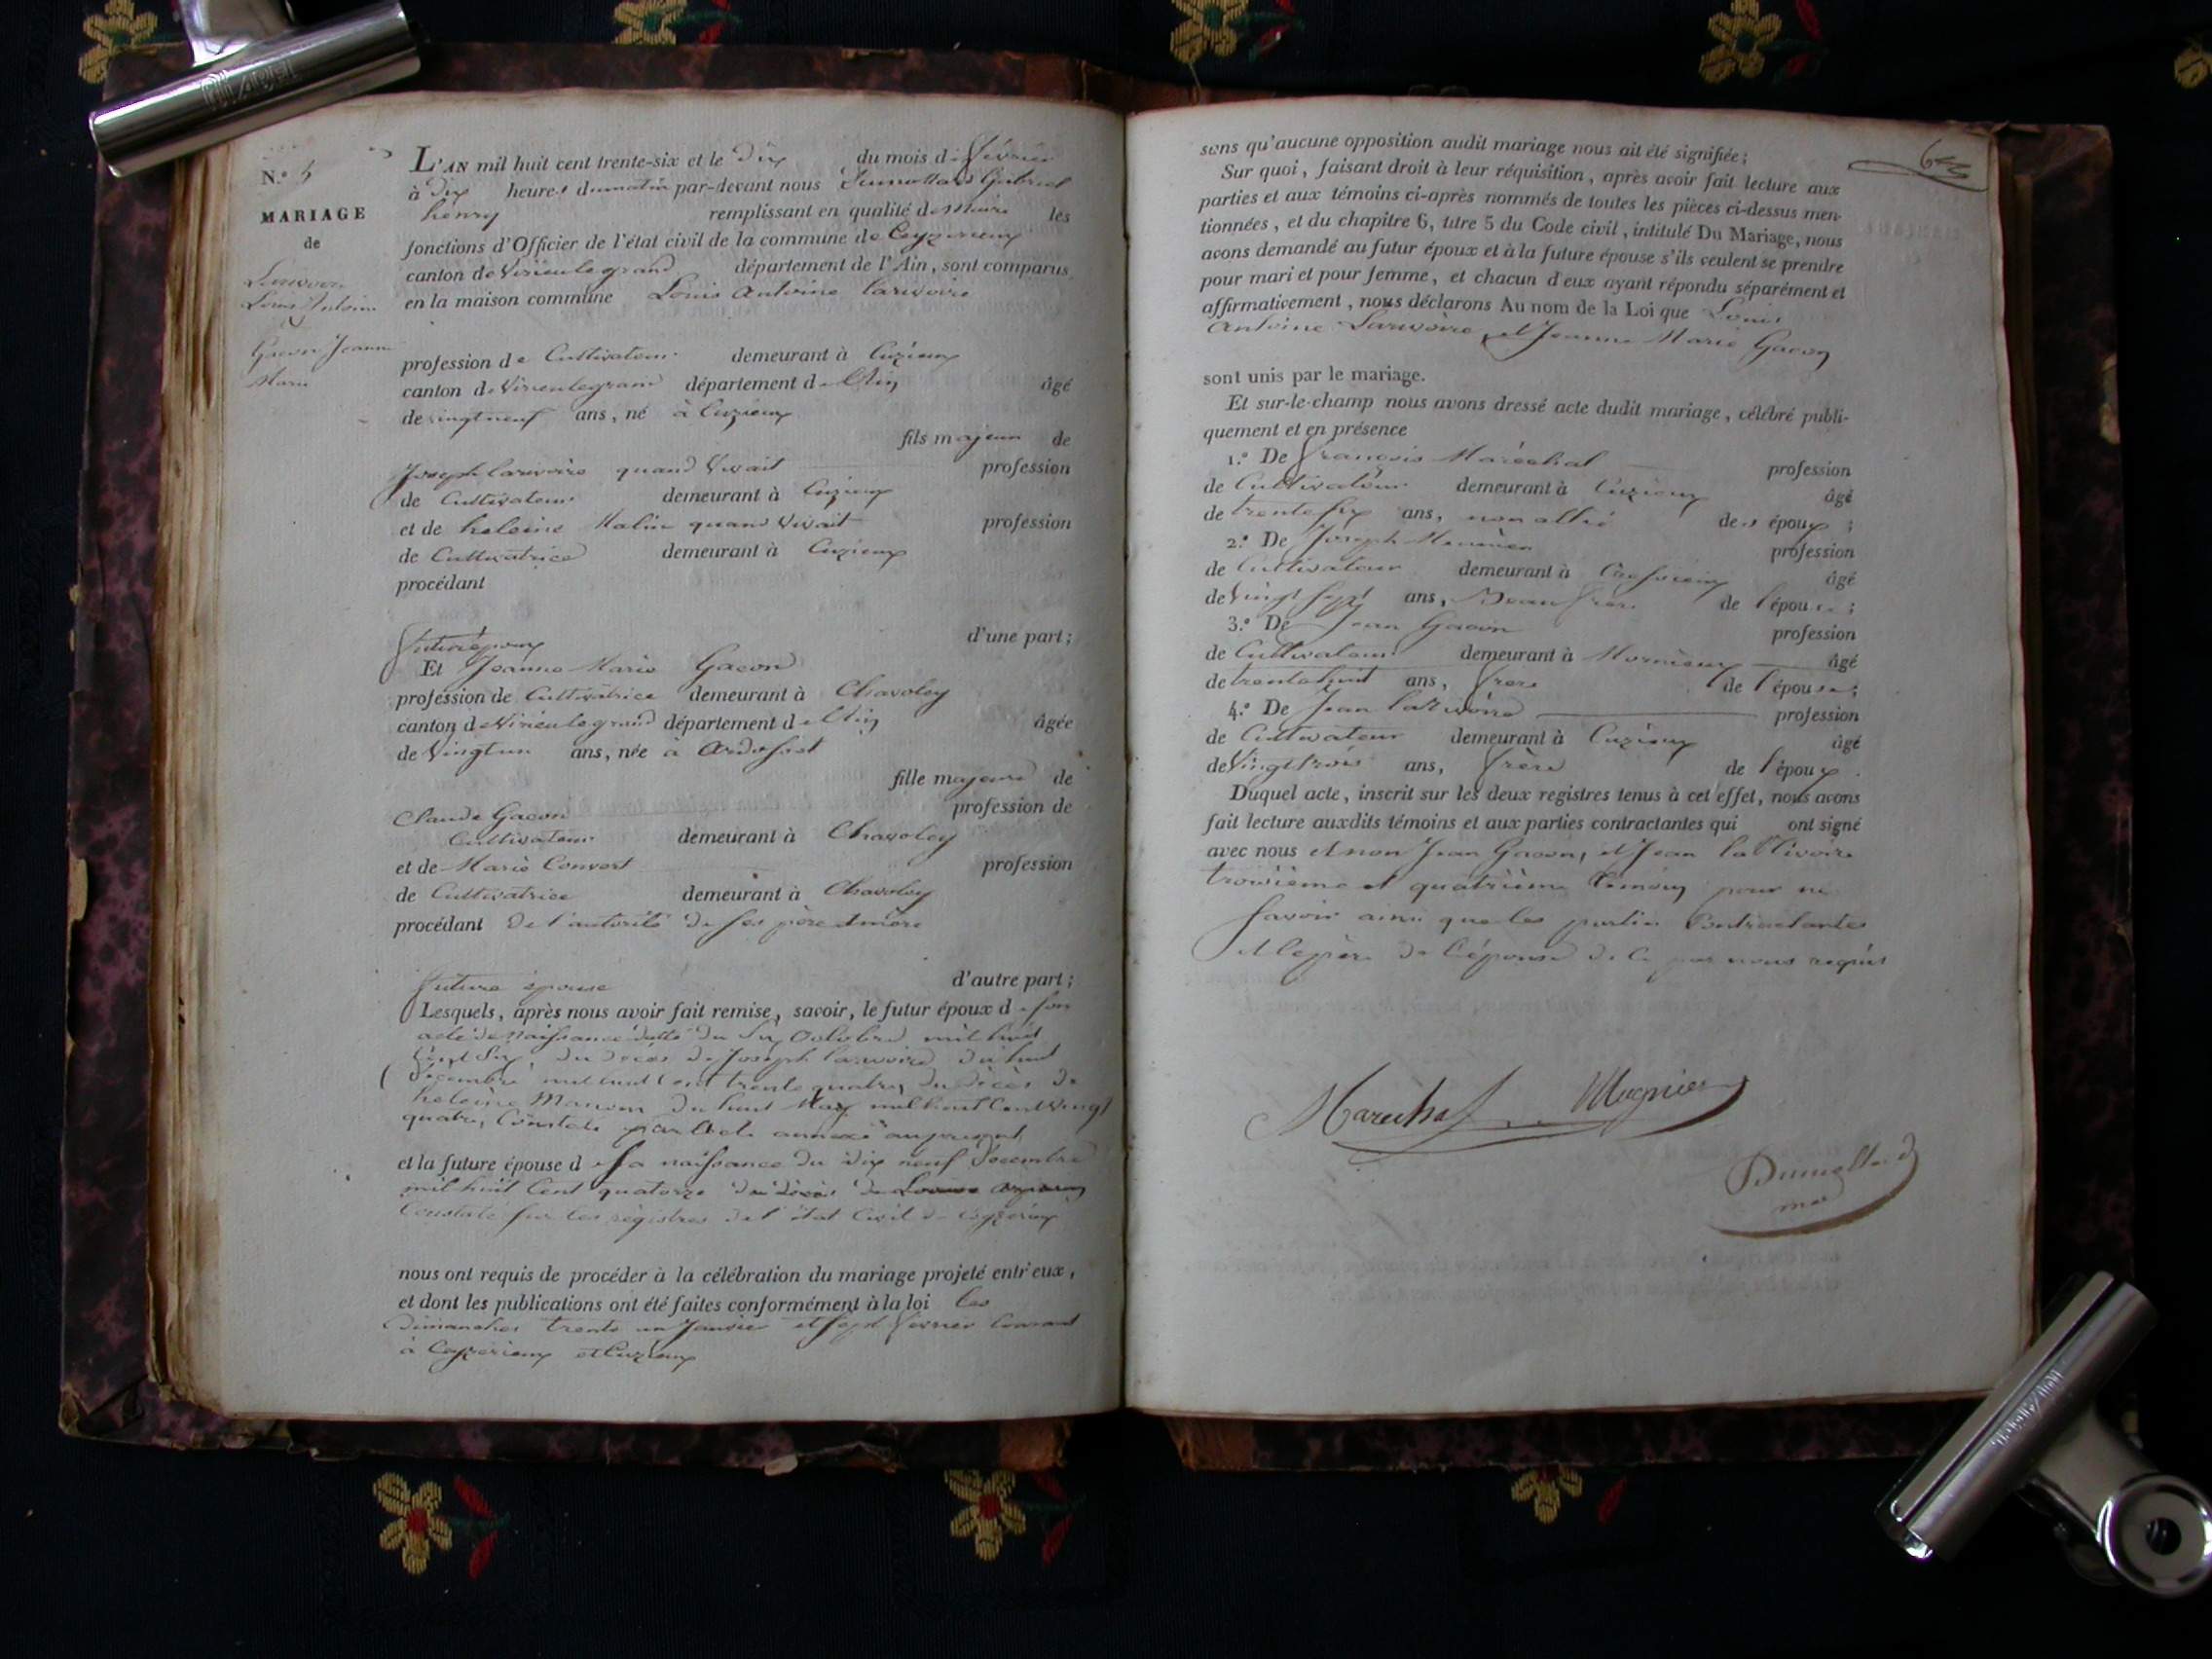 N.° 5
MARIAGE
de
Louis Antoine
Gacon Jeanne
Marie
L'AN mil huit cent trente-six et le dix du mois de février
à dix heures du matin par-devant nous Dumollard Gabriel
henry remplissant en qualité de Maire les
fonctions d'Officier de l'état civil de la commune de Ceyzerieux
canton de Virieu le grand département de l'Ain, sont comparus
en la maison commune Louis Antoine Larivoire
profession de Cultivateur demeurant à Cuzieux
canton de Virieu le grand département de l'Ain âgé
de vingt neuf ans, né à Cuzieux
fils majeur de
Joseph Larivoire quand vivait profession
de Cultivateur demeurant à Cuzieux
et de heleine quand vivait profession
de Cultivatrice demeurant à Cuzieux
procédant
futur époux d'une part;
Et Jeanne Marie Gacon
profession de Cultivatrice demeurant à Chavoley
canton de Virieu le grand département de l'Ain âgée
de vingt un ans, née à Ardosset
fille majeure de
Claude Gacon profession de
Cultivateur demeurant à Chavoley
et de Marie Convert profession
de Cultivatrice demeurant à Chavoley
procédant de l'autorité de ses père et mère
future épouse d'autre part;
Lesquels, après nous avoir fait remise, savoir, le futur époux de son
acte de naissance datté du six octobre mil huit
cent six, du décès de Joseph Larivoire du huit
décembre mil huit cent trente quatre, du décès de
heleine du huit May mil huit cent vingt
quatre, constaté par acte annexé au présent
et la future épouse de sa naissance du dix neuf décembre
mil huit cent quatorze du décès de
Constaté sur les régistres de l'état Civil de Ceyzerieux
nous ont requis de procéder à la célébration du mariage projeté entr'eux,
et dont les publications ont été faites conformément à la loi les
Dimanches trente un Janvier et sept février Courant
à Ceyzerieux et Cuzieux
6
sans qu'aucune opposition audit mariage nous ait été signifiée;
Sur quoi, faisant droit à leur réquisition, après avoir fait lecture aux
parties et aux témoins ci-après nommés de toutes les pièces ci-dessus men-
tionnées, et du chapitre 6, titre 5 du Code civil, intitulé Du Mariage, nous
avons demandé au futur époux et à la future épouse s'ils veulent se prendre
pour mari et pour femme, et chacun d'eux ayant répondu séparément et
affirmativement, nous déclarons Au nom de la Loi que Louis
Antoine Larivoire, et Jeanne Marie Gacon
sont unis par le mariage.
Et sur-le-champ nous avons dressé acte dudit mariage, célébré publi-
quement et en présence
1.° De François Maréchal profession
de Cultivateur demeurant à Cuzieux âgé
de trente six ans, non allié des époux;
2.° De Joseph profession
de Cultivateur demeurant à âgé
de Vingt sept ans, Beau frère de l'épouse;
3.° De Jean Gacon profession
de Cultivateur demeurant à âgé
de trente huit ans, frère de l'épouse;
4.° De Jean Larivoire profession
de Cultivateur demeurant à Cuzieux âgé
de Vingt trois ans, frère de l'époux.
Duquel acte, inscrit sur les deux registres tenus à cet effet, nous avons
fait lecture auxdits témoins et aux parties contractantes qui ont signé
avec nous et non Jean Gacon, et Jean la Rivoire
troisième et quatrième témoin pour ne
savoir ainsi que les parties Contractantes
et le père de l'épouse de ce par nous requis
Maréchal Mugnier
Dumollard